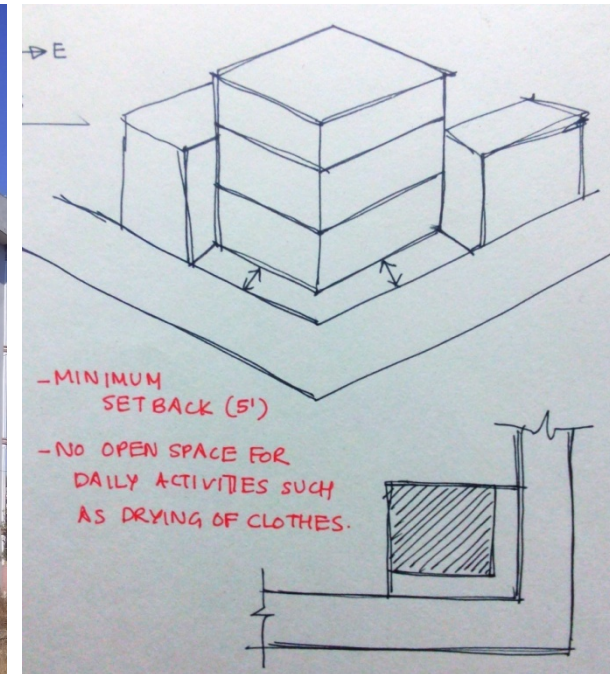 E
- MINIMUM
SETBACK (5')
- NO OPEN SPACE FOR
DAILY ACTIVITIES SUCH
AS DRYING OF CLOTHES.